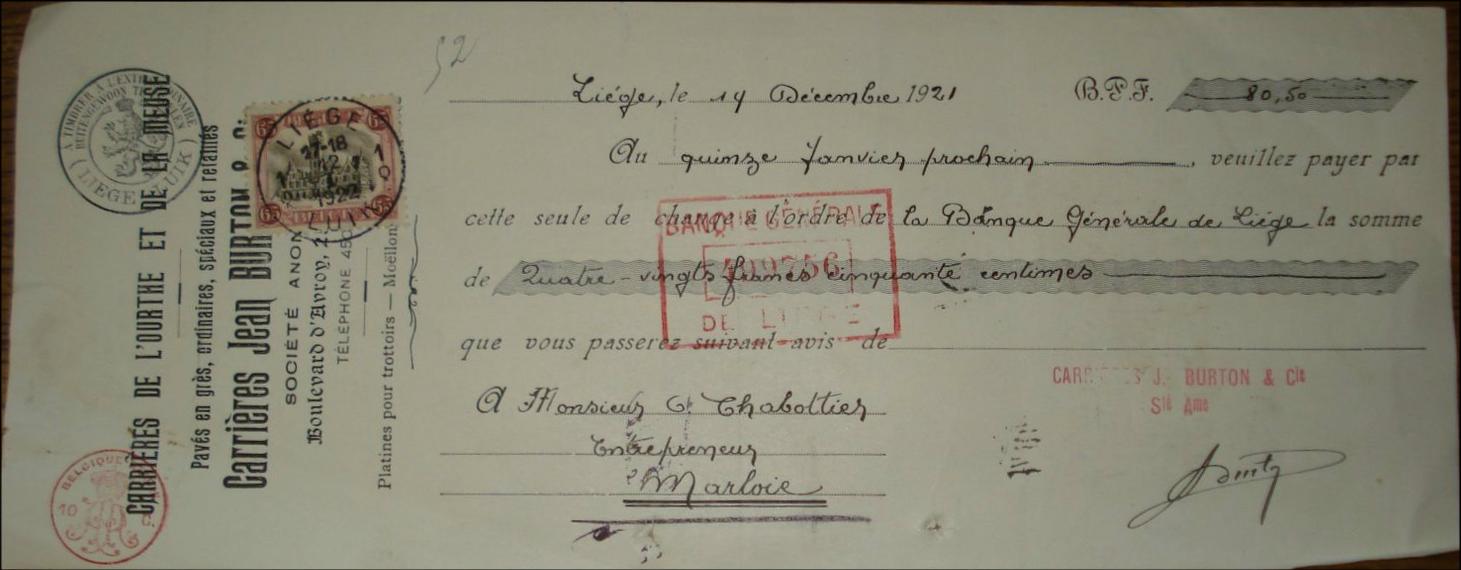 52
Liége, le 19 Décembre 1921 B.P.F. 80,50
Au quinze Janvier prochain, veuillez payer par
cette seule de change à l'ordre de la Banque Générale de Liége la somme
de Quatre-vingts francs cinquante centimes
que vous passerez suivant avis de
A Monsieur Chabottier
Entrepreneur
Marloie
BANQUE GÉNÉRALE
DE LIEGE
CARRIERES J. BURTON & Cie
Sté Ame
CARRIÈRES DE L'OURTHE ET DE LA MEUSE
Pavés en grès, ordinaires, spéciaux et retaillés
Carrières Jean BURTON & C
SOCIÉTÉ ANON
Boulevard d'Avroy, 2
TÉLÉPHONE 450
Platines pour trottoirs — Moëllon
A TIMBRER À L'EXTRAORDINAIRE
BUITENGEWOON TE
LIEGE LUIK
65 65
LIÉGE
27-18
12
I
1922
LUIK
65 65
BELGIQUE
10 C